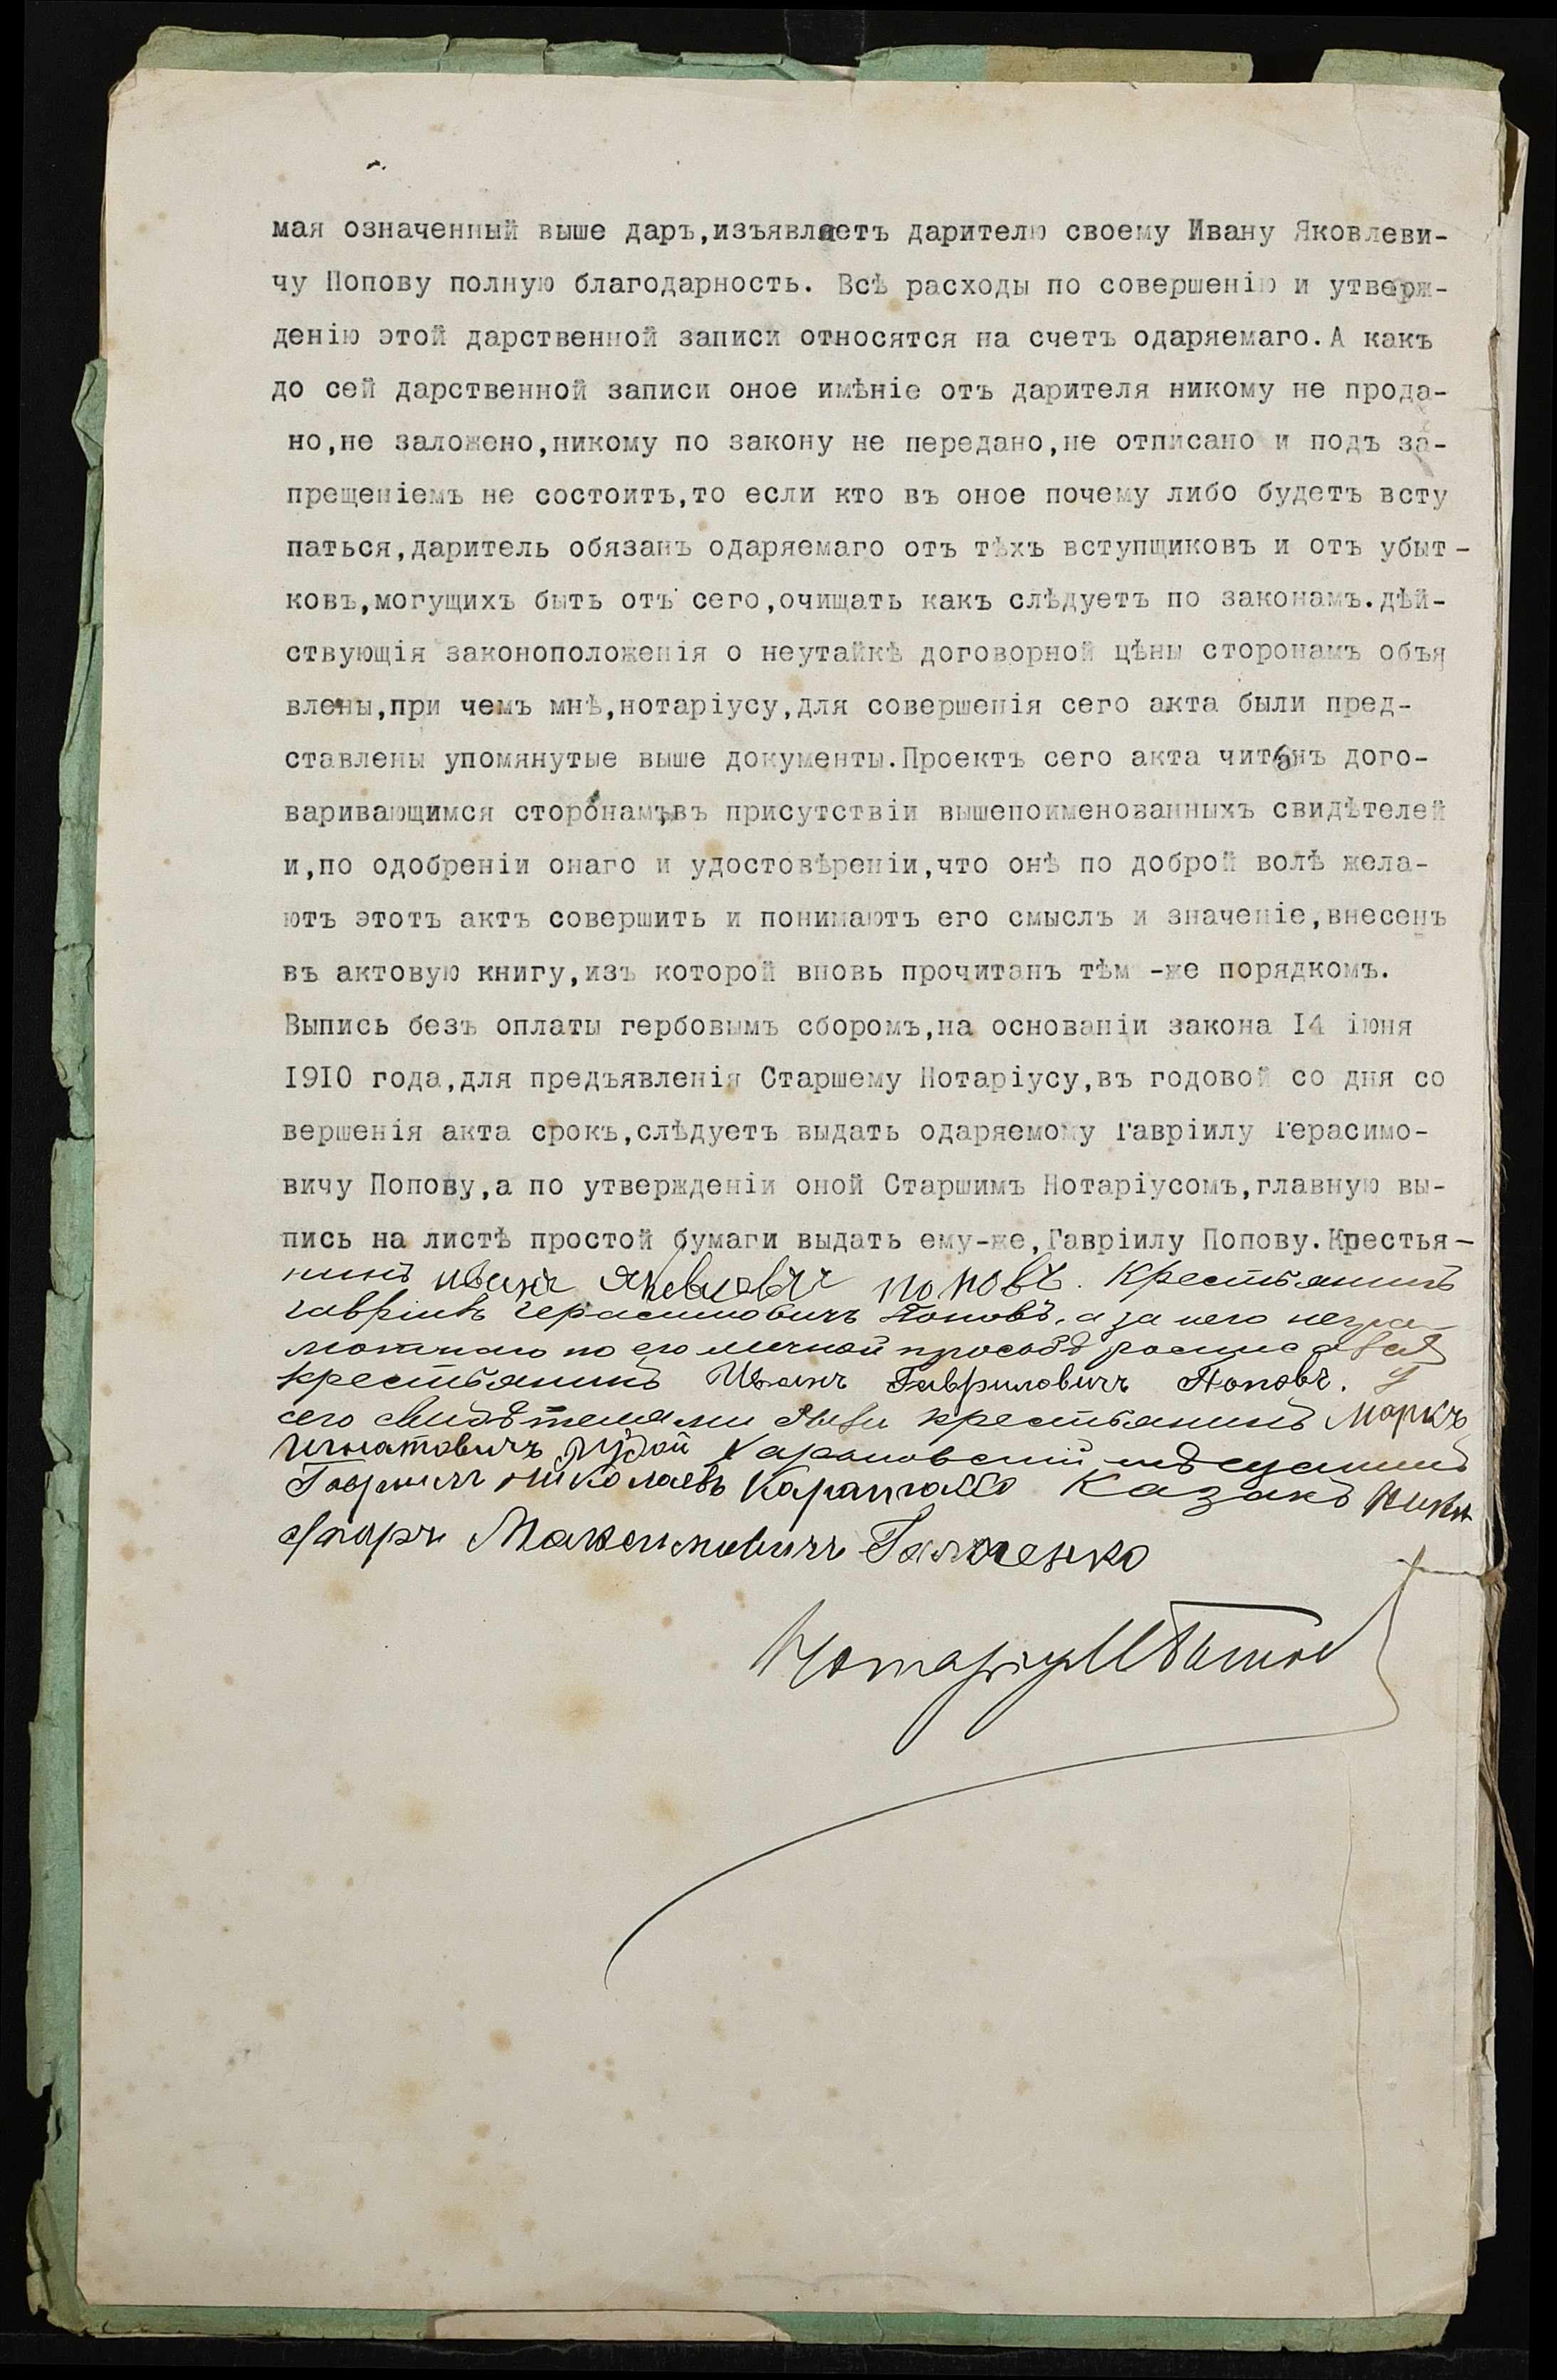 мая означенный выше даръ,изъявляетъ дарителю своему Ивану Яковлеви-
чу Попову полную благодарность. Всѣ расходы по совершенію и утверж-
денію этой дарственной записи относятся на счетъ одаряемаго.А какъ
до сей дарственной записи оное имѣніе отъ дарителя никому не прода-
но,не заложено,никому по закону не передано,не отписано и подъ за-
прещеніемъ не состоитъ,то если кто въ оное почему либо будетъ всту
паться,даритель обязанъ одаряемаго отъ тѣхъ вступщиковъ и отъ убыт-
ковъ,могущихъ быть отъ сего,очищать какъ слѣдуетъ по законамъ.дѣй-
ствующія законоположенія о неутайкѣ договорной цѣны сторонамъ объя
влены,при чемъ мнѣ,нотаріусу,для совершенія сего акта были пред-
ставлены упомянутые выше документы.Проектъ сего акта читанъ дого-
варивающимся сторонамъ,въ присутствіи вышепоименованныхъ свидѣтелей
и,по одобреніи онаго и удостовѣреніи,что онѣ по доброй волѣ жела-
ютъ этотъ актъ совершить и понимаютъ его смыслъ и значеніе,внесенъ
въ актовую книгу,изъ которой вновь прочитанъ тѣм -же порядкомъ.
Выпись безъ оплаты гербовымъ сборомъ,на основаніи закона I4 іюня
I9I0 года,для предъявленія Старшему Нотаріусу,въ годовой со дня со
вершенія акта срокъ,слѣдуетъ выдать одаряемому Гавріилу Герасимо-
вичу Попову,а по утвержденіи оной Старшимъ Нотаріусомъ,главную вы-
пись на листѣ простой бумаги выдать ему-же,Гавріилу Попову.Крестья-
нинъ иванъ поповъ. Крестьянинъ
Гавріилъ Герасимовичъ Поповъ, а за него негра-
мотнаго по его личной просьбѣ росписался
крестьянинъ Иванъ Гавриловичъ Поповъ. У
сего свидѣтелями были крестьянинъ Маркъ
Игнатовичъ Рудой мѣщанинъ
Гавриилъ Николаевъ Казакъ Ники
форъ Максимовичъ Галюченко
Нотаріусъ